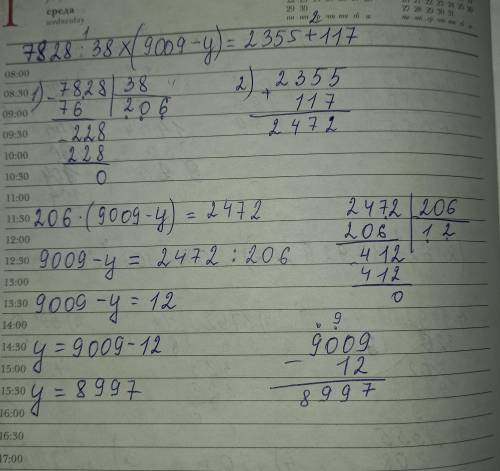 среда
wednesday
1 2
7828 : 38 × (9009 - y) = 2355 + 117
08:00
08:30
09:00
09:30
10:00
10:30
11:00
11:30
12:00
12:30
13:00
13:30
14:00
14:30
15:00
15:30
16:00
16:30
17:00
1) 7828 | 38
- 76 | 206
- 228
228
0
2) 2355
+ 117
2472
206 · (9009 - y) = 2472
9009 - y = 2472 : 206
9009 - y = 12
y = 9009 - 12
y = 8997
2472 | 206
206 | 12
- 412
412
0
9
9009
- 12
8997